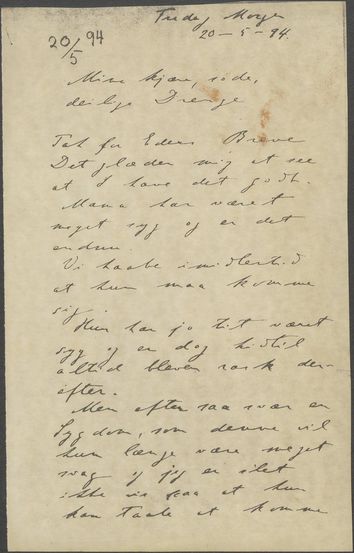 Fredag Morgen
20 - 5 - 94.
20/5 94
Mine kjære, söde,
deilige Drenge
Tak for Eders Breve
Det glæder mig at see
at I have det godt.
Mama har været
meget syg og er det
endnu.
Vi haabe imidlertid
at hun maa komme
sig.
Hun har jo tit været
syg og er dog hidtil
altid bleven rask der-
efter.
Men efter saa svær en
Sygdom, som denne vil
hun længe være meget
svag og jeg er slet
ikke vis paa at hun
kan taale at komme